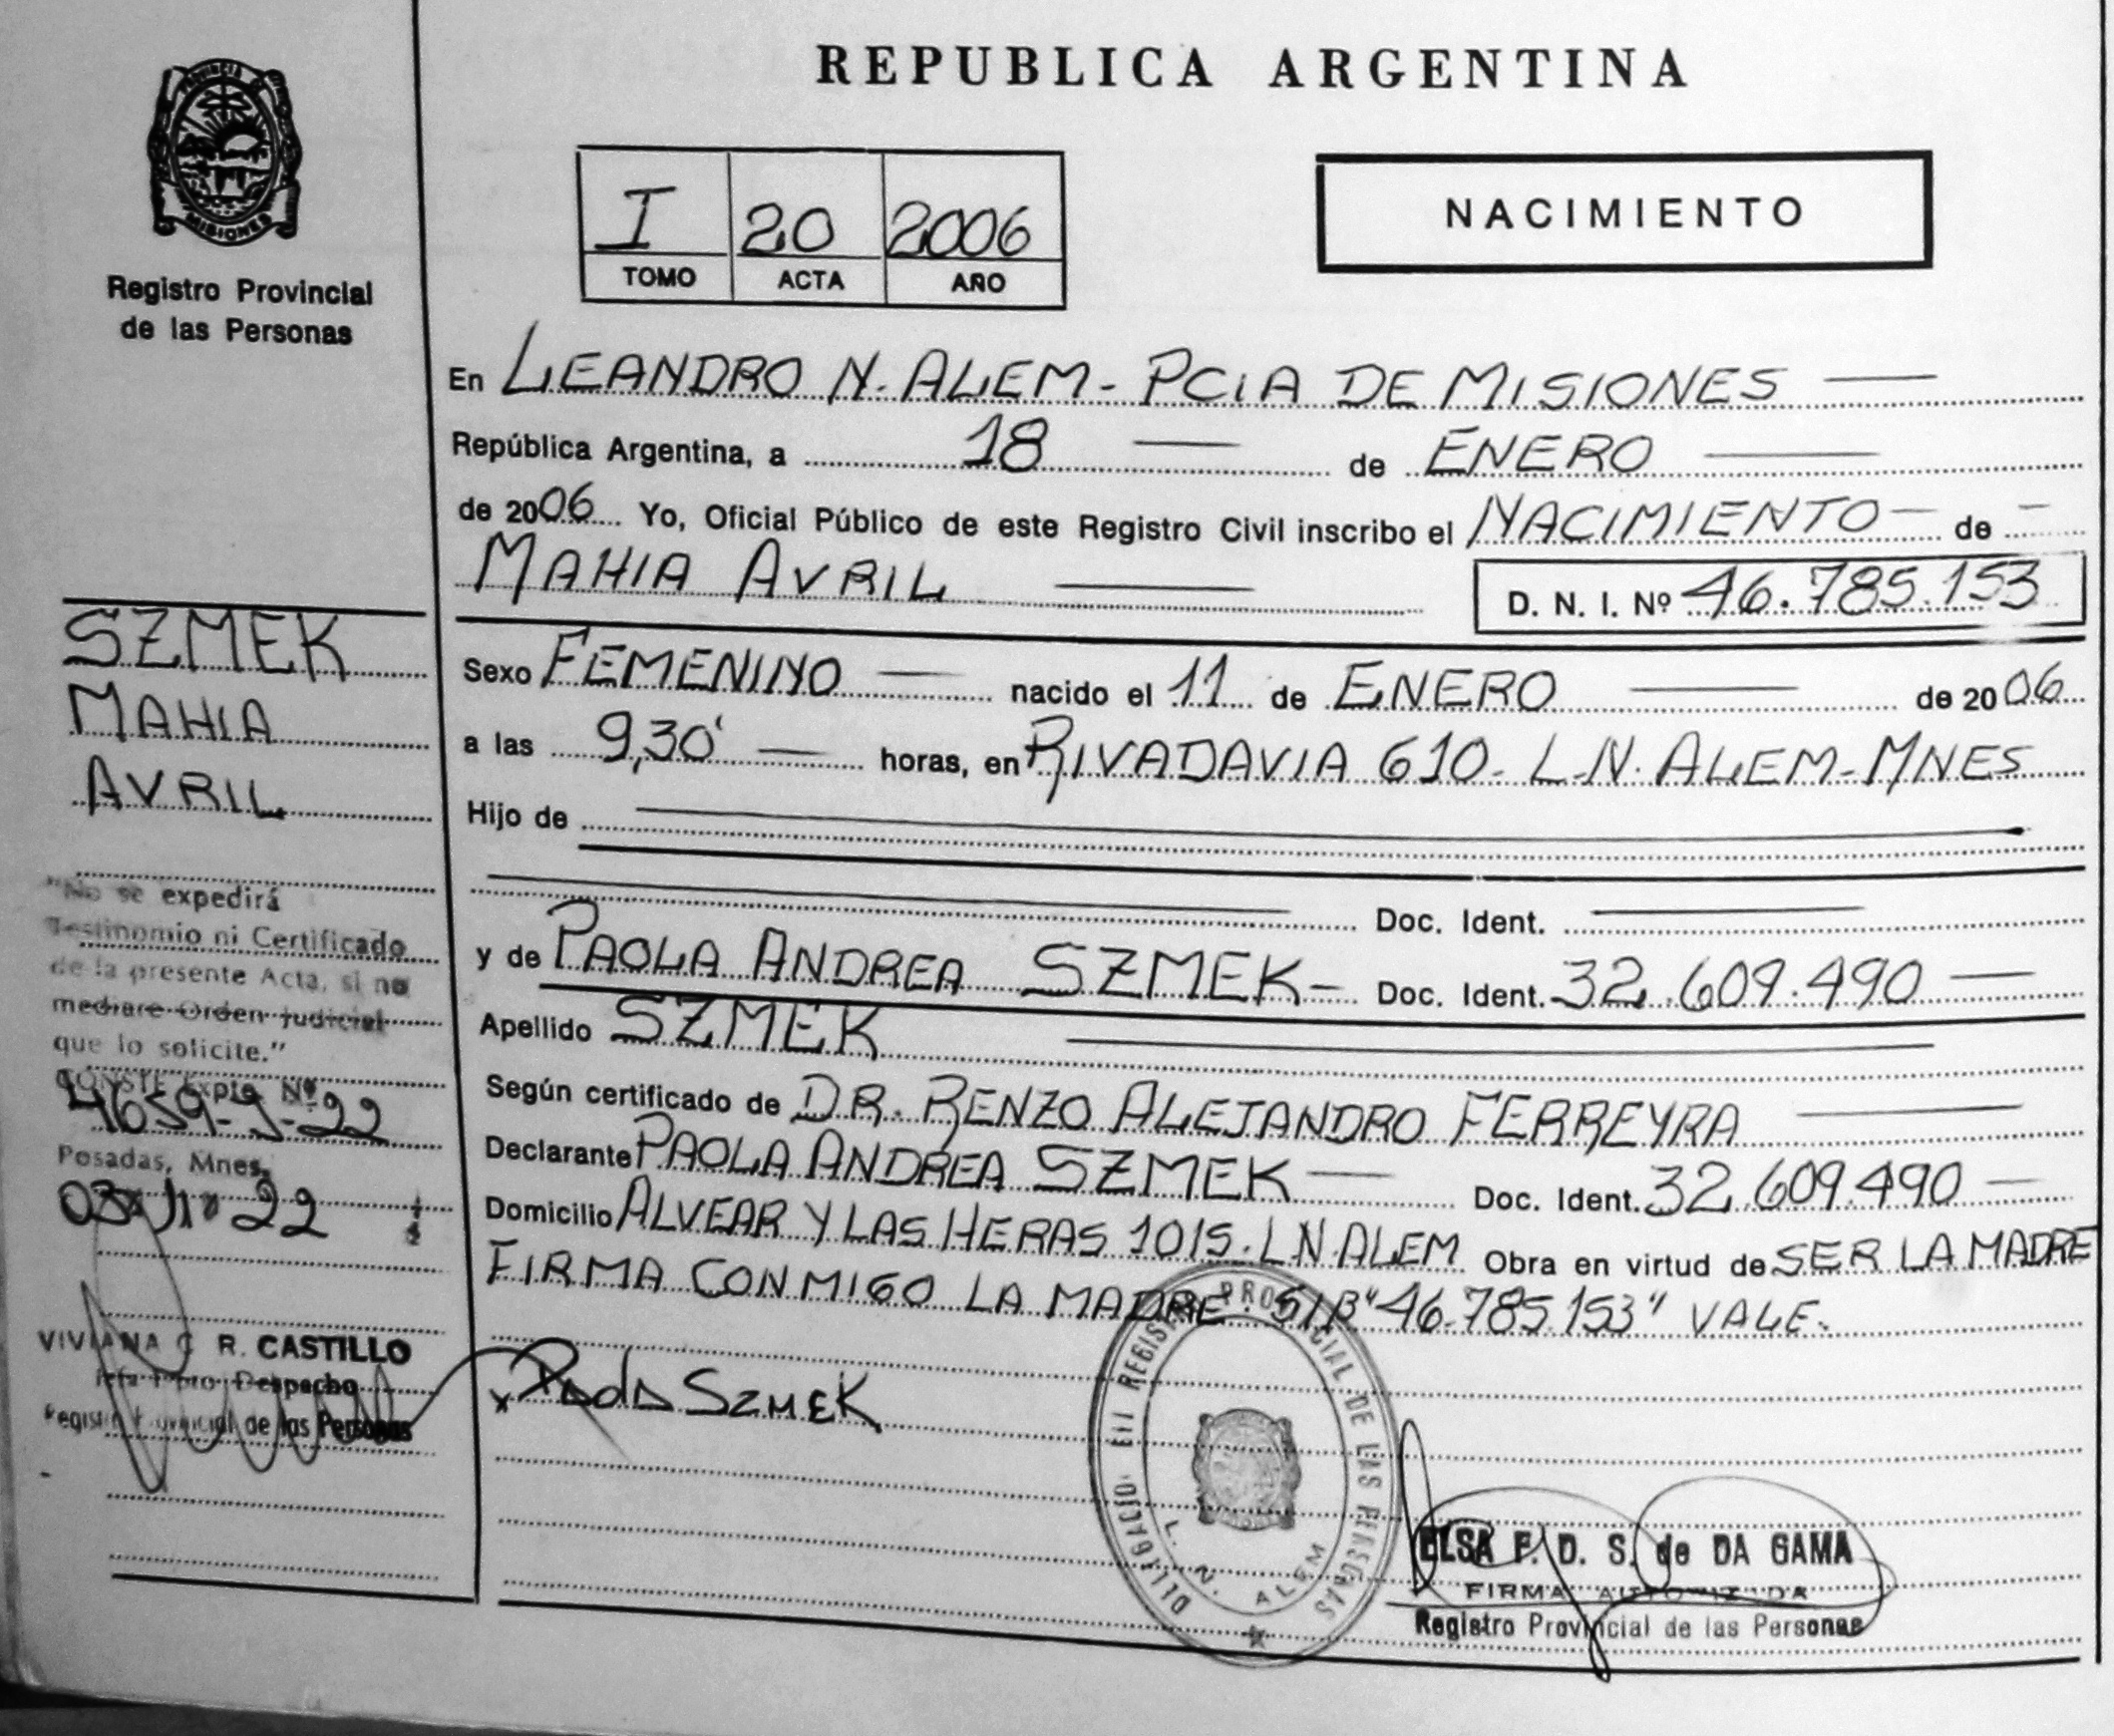 REPUBLICA ARGENTINA
PROVINCIA DE
MISIONES
Registro Provincial
de las Personas
I 20 2006
TOMO ACTA AÑO
NACIMIENTO
En LEANDRO N. ALEM - PCIA DE MISIONES
República Argentina, a 18 de ENERO
de 2006 Yo, Oficial Público de este Registro Civil inscribo el NACIMIENTO de
MAHIA AVRIL D. N. I. Nº 46.785.153
Sexo FEMENINO nacido el 11 de ENERO de 2006
a las 9,30' horas, en RIVADAVIA 610 - L.N. ALEM - MNES
Hijo de
Doc. Ident.
y de PAOLA ANDREA SZMEK - Doc. Ident. 32.609.490
Apellido SZMEK
Según certificado de DR. RENZO ALEJANDRO FERREYRA
Declarante PAOLA ANDREA SZMEK Doc. Ident. 32.609.490
Domicilio ALVEAR Y LAS HERAS 1015. L.N. ALEM Obra en virtud de SER LA MADRE
FIRMA CONMIGO LA MADRE. S/B "46.785.153" VALE.
x Paola SZMEK
SZMEK
MAHIA
AVRIL
"No se expedirá
Testimonio ni Certificado
de la presente Acta, si no
mediare Orden judicial
que lo solicite."
CONSTE Expte. Nº
4659-J-22
Posadas, Mnes.
03 11 22
VIVIANA C. R. CASTILLO
Jefa Dpto Despacho
Registro Provincial de las Personas
REGISTRO PROVINCIAL DE LAS PERSONAS
L. N. ALEM
ELSA F. D. S. de DA GAMA
FIRMA AUTORIZADA
Registro Provincial de las Personas